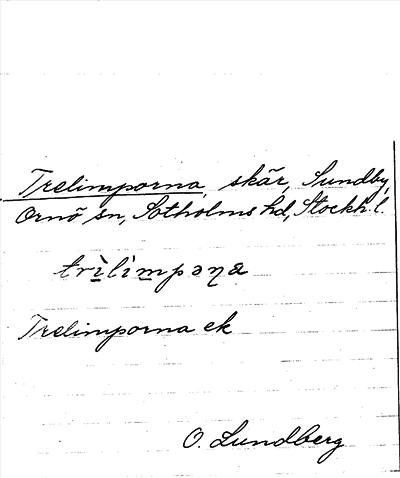 Trelimporna, skär, Sundby,
Ornö sn, Sotholms hd, Stockh. l.
trìlìmpəɳa
Trelimporna ek
O. Lundberg